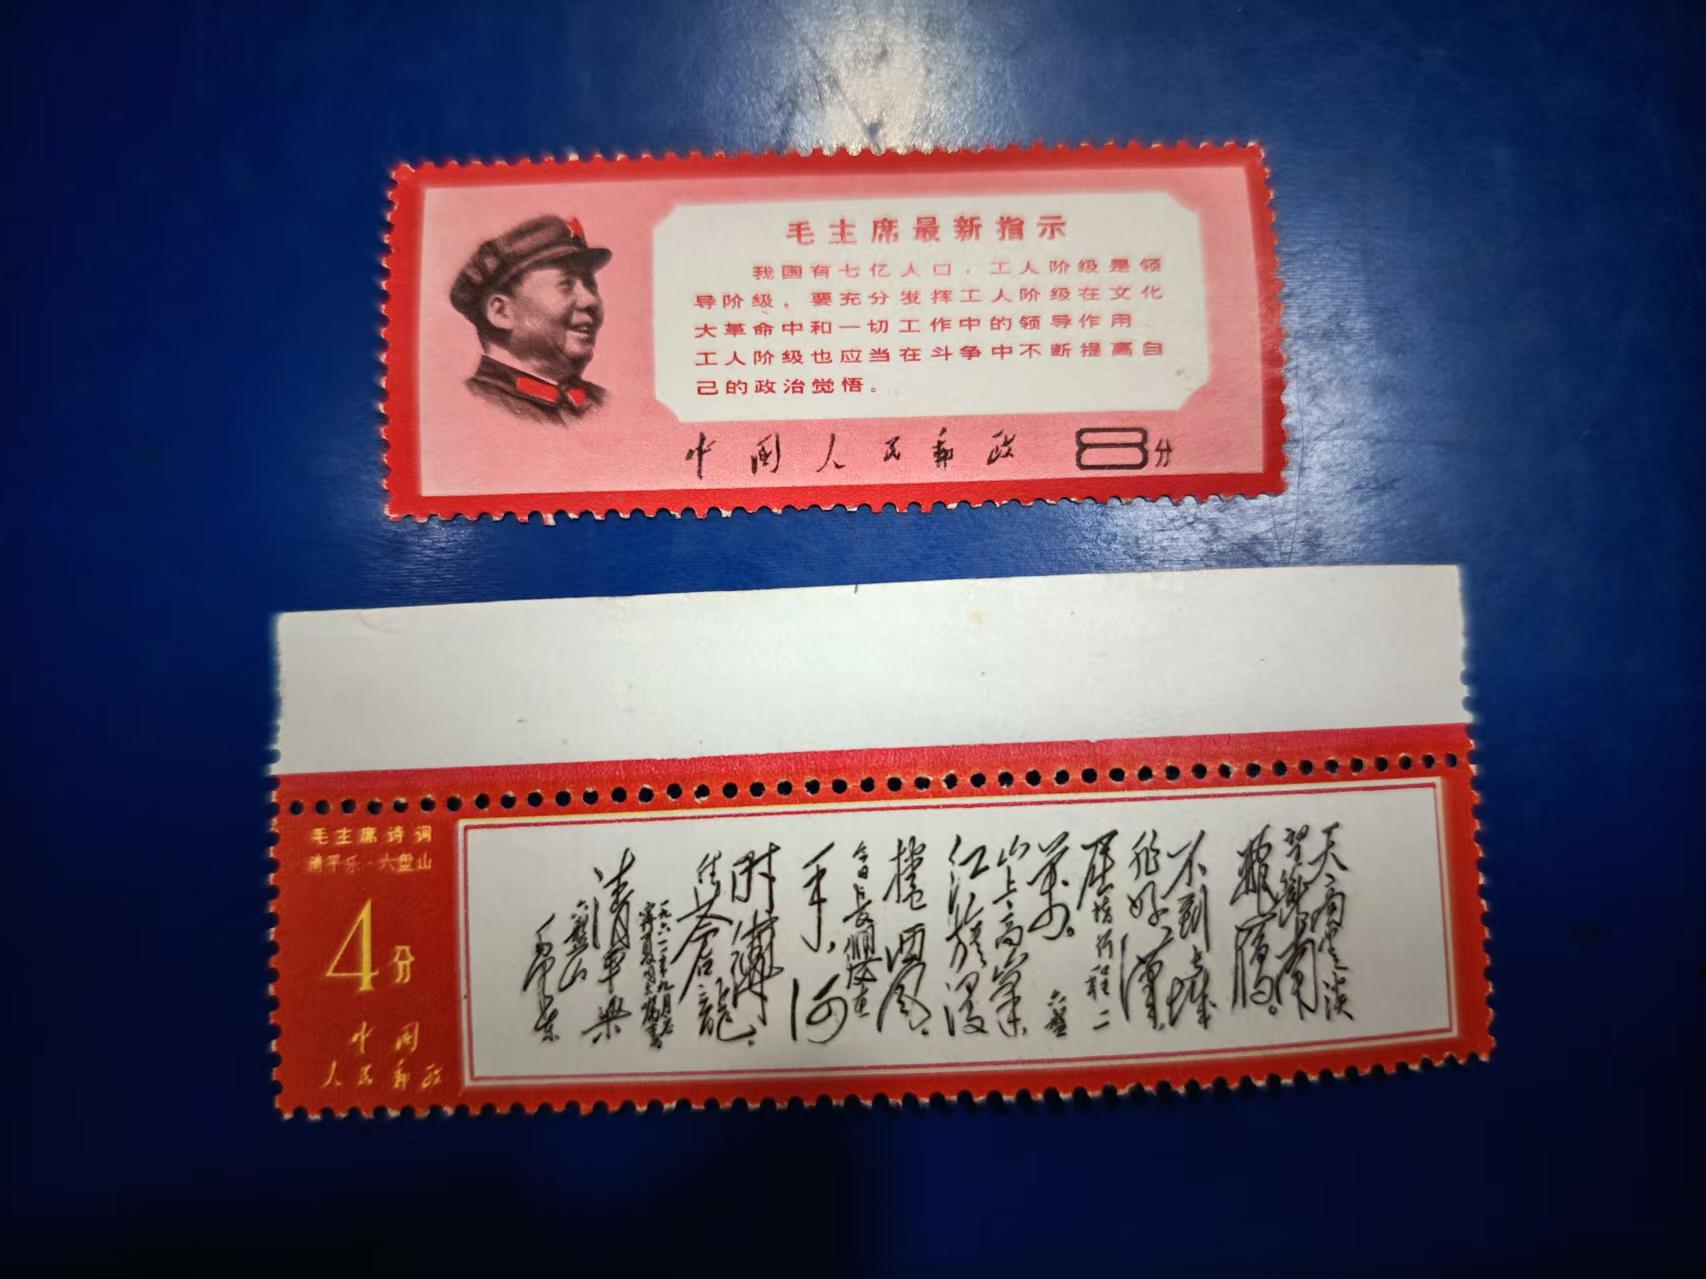 毛主席最新指示
我国有七亿人口，工人阶级是领
导阶级。要充分发挥工人阶级在文化
大革命中和一切工作中的领导作用
工人阶级也应当在斗争中不断提高自
己的政治觉悟。
中国人民邮政 8分
毛主席诗词
清平乐·六盘山
4分
中国
人民邮政
天高雲淡
望断南
飛雁。
不到长城
非好漢
屈指行程二
萬。六盤
山上高峯
红旗漫
捲西風。
今日長缨在
手，何
時縛
住苍龍
一九六一年九月应
寧夏同志嘱書
清平樂
六盤山
毛泽东